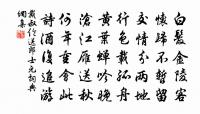 白髮金陵客
懷歸不暫留
交情分兩地
行色載孤舟
黃葉蟬吟晚
滄江雁送秋
何年重會此
詩酒復追遊
戴叔倫送郎士元詞典
網集